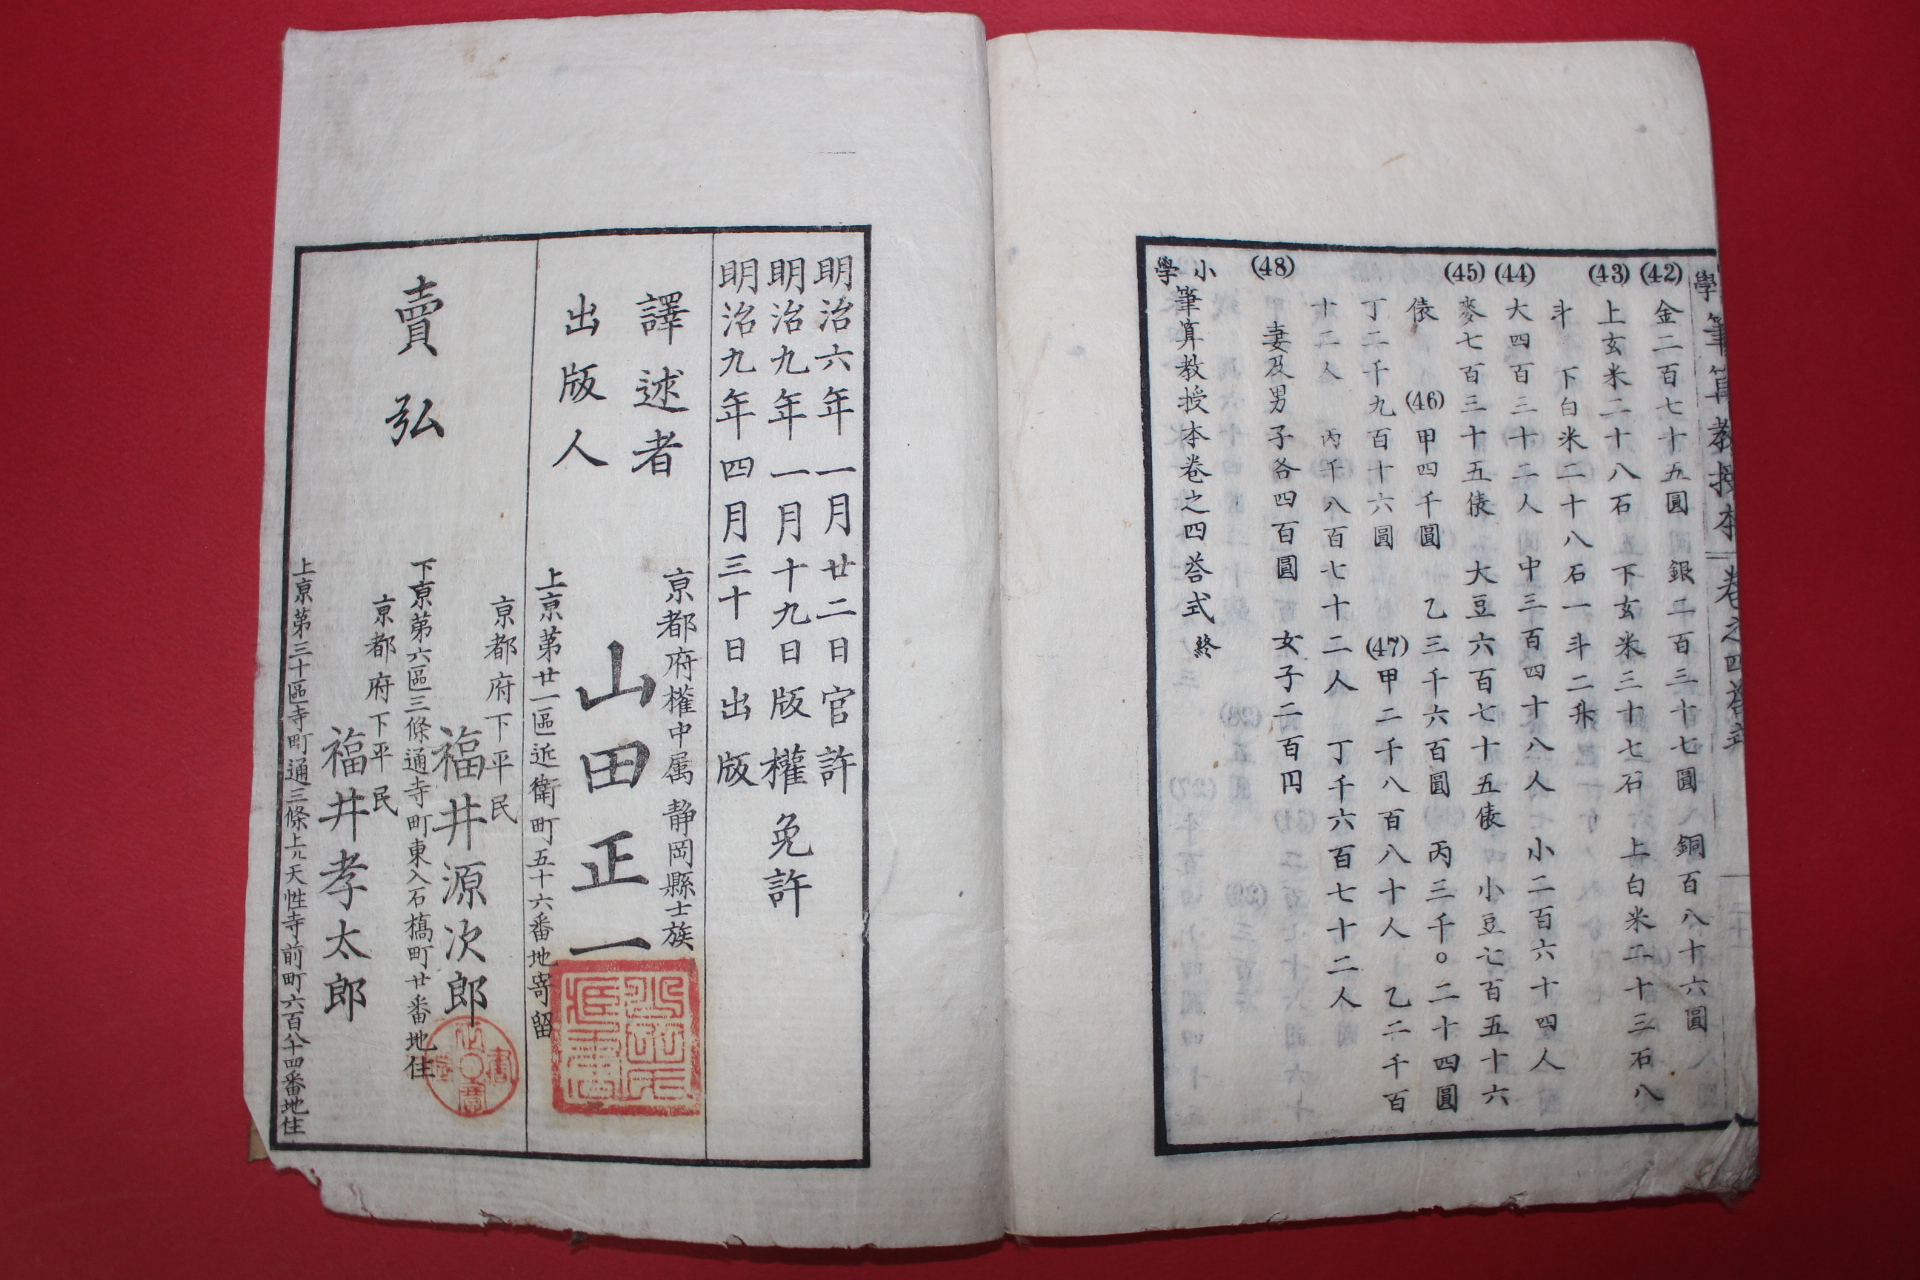 (42) 金二百七十五圓 銀二百三十七圓 銅百八十六圓
(43) 上玄米二十八石 下玄米三十七石 上白米二十三石八
斗 下白米二十八石一斗二升
(44) 大四百三十二人 中三百四十八人 小二百六十四人
(45) 麥七百三十五俵 大豆六百七十五俵 小豆七百五十六
俵 (46) 甲四千圓 乙三千六百圓 丙三千〇二十四圓
丁二千九百十六圓 (47) 甲二千八百八十人 乙二千百
十二人 丙千八百七十二人 丁千六百七十二人
(48) 妻及男子各四百圓 女子二百円
小學筆算教授本卷之四答式 終
明治六年一月廿二日官許
明治九年一月十九日版權免許
明治九年四月三十日出版
譯述者
出版人
京都府權中属 静岡縣士族
山田正一
上京第廿一區近衛町五十六番地寄留
賣弘
京都府下平民
福井源次郎
下京第六區三條通寺町東入石橋町廿番地住
京都府下平民
福井孝太郎
上京第三十區寺町通三條上ル天性寺前町六百八十四番地住